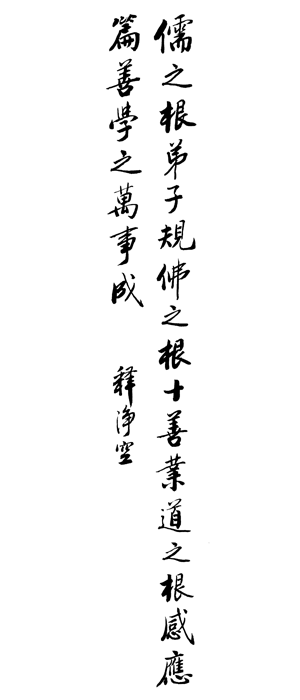 儒之根弟子規佛之根十善業道之根感應
篇善學之萬事成
釋淨空